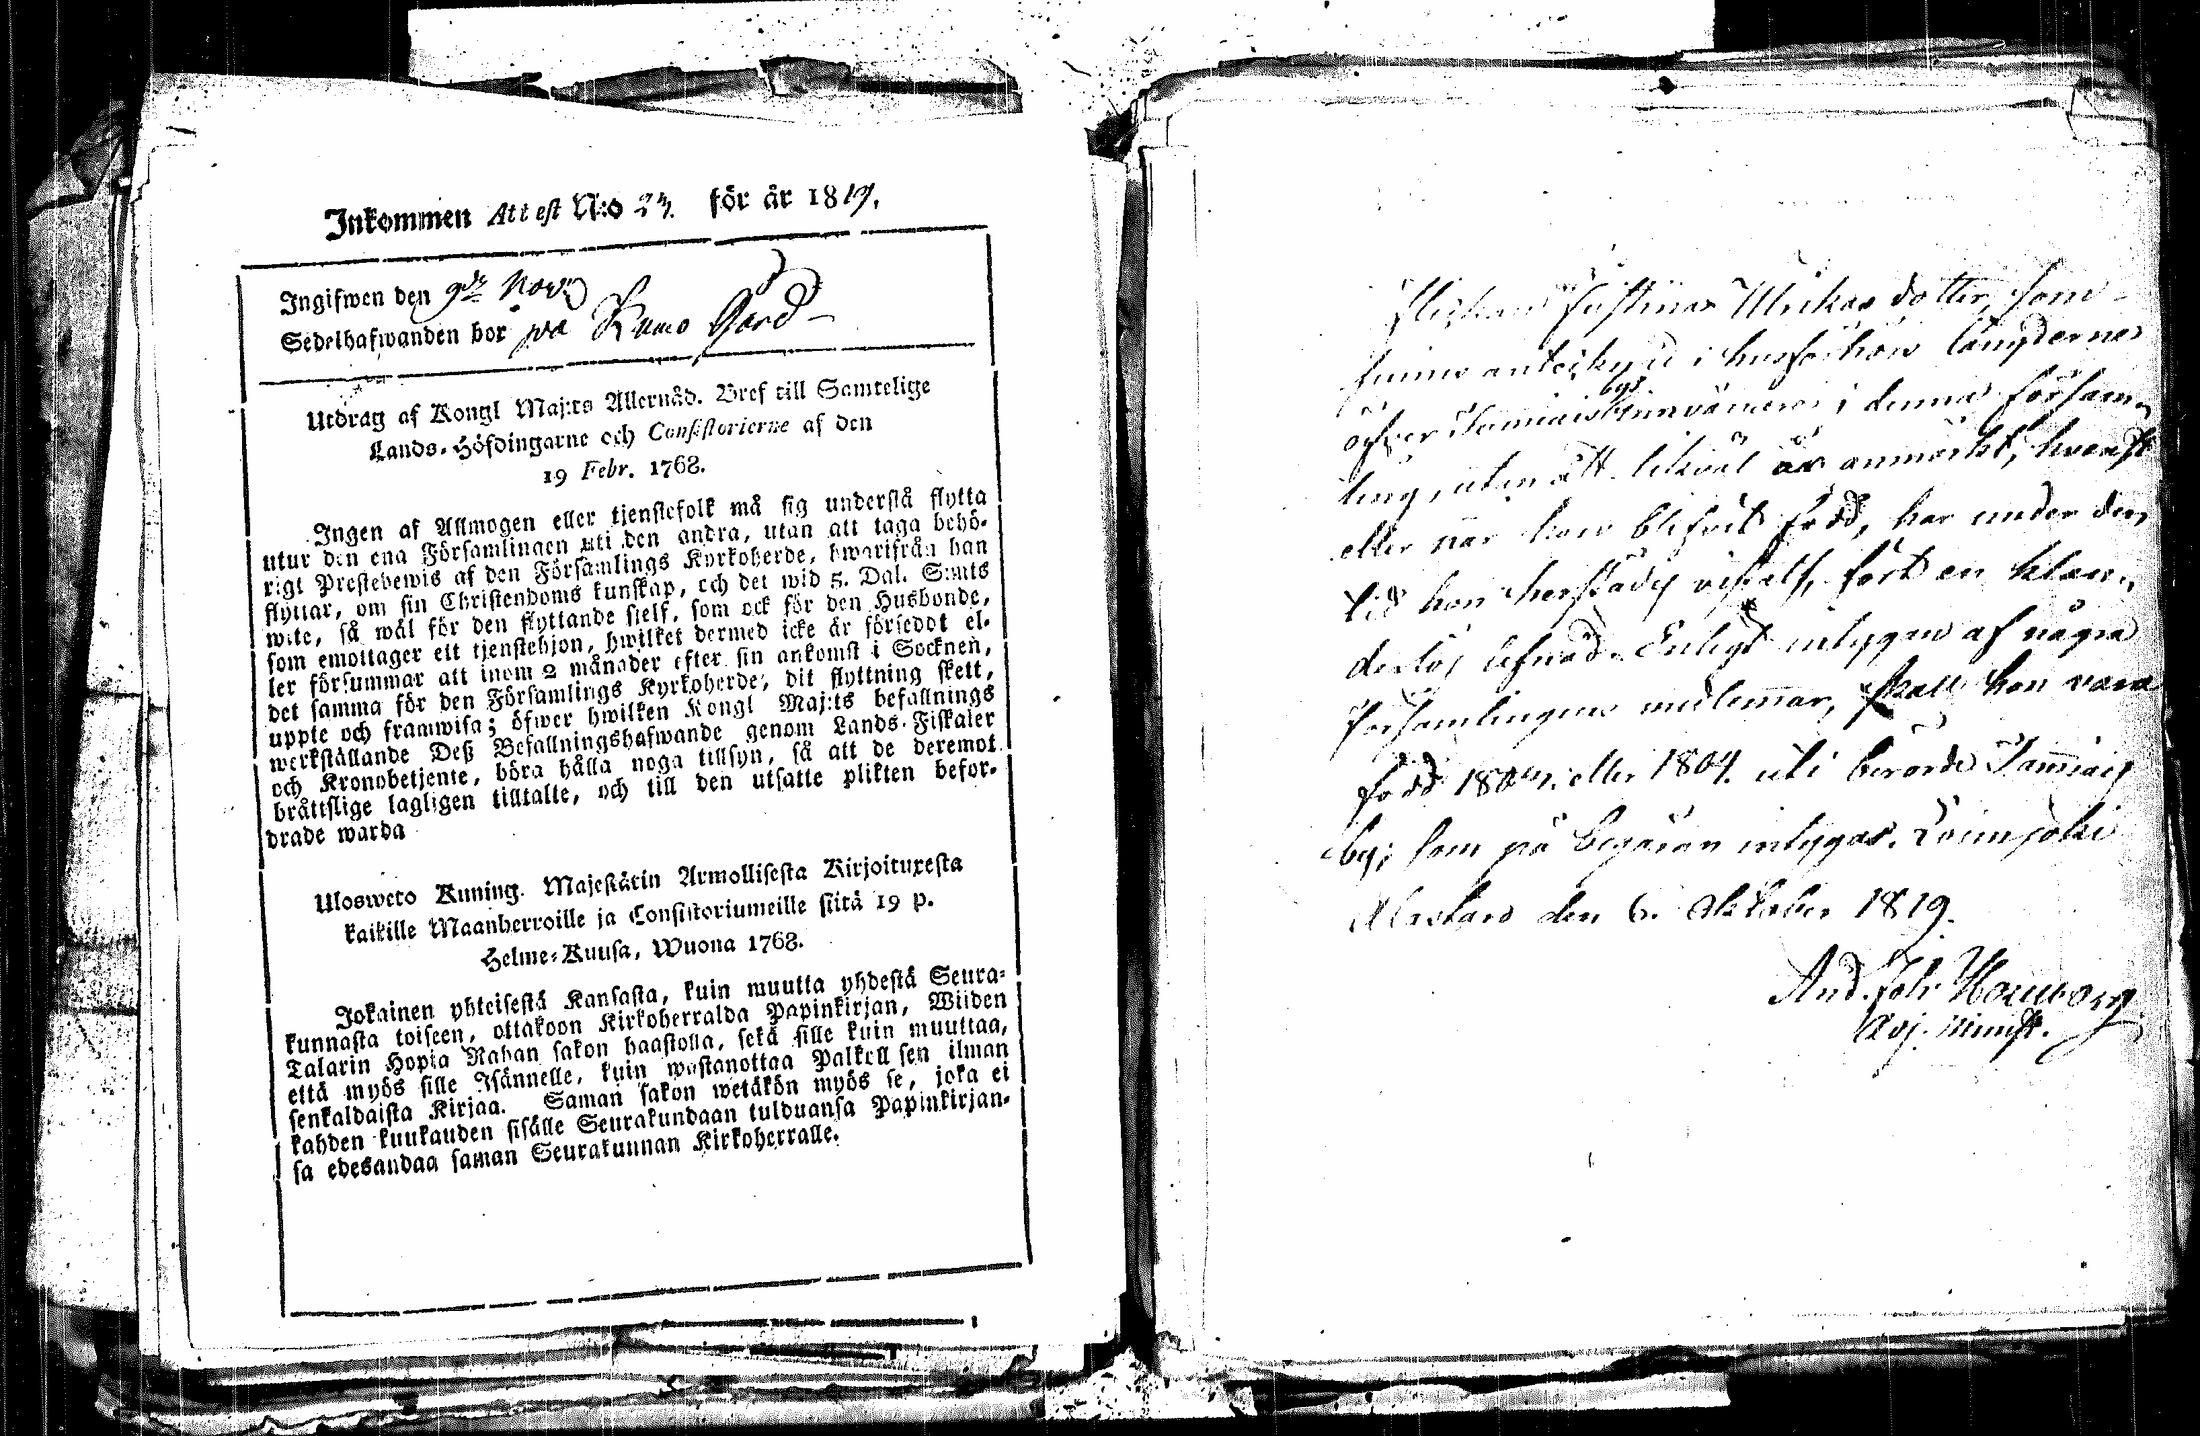 Inkommen Attest N:o 24. för år 1819.
Ingifwen den 9de Nov:
Sedelhafwanden bor på Kumo Gård
Utdrag af Kongl Maj:ts Allernåd. Bref till Samtelige
Lands-Höfdingarne och Consistorierne af den
19 Febr. 1768.
Ingen af Allmogen eller tjenstefolk må sig understå flytta
utur den ena Församlingen uti den andra, utan att taga behö-
rigt Prestebewis af den Församlings Kyrkoherde, hwarifrån han
flyttar, om sin Christendoms kunskap, och det wid 5. Dal. S:mts
wite, så wäl för den flyttande sielf, som ock för den Husbonde,
som emottager ett tjenstehjon, hwilket dermed icke är försedt el-
ler försummar att inom 2 månader efter sin ankomst i Socknen,
det samma för den Församlings Kyrkoherde, dit flyttning skett,
uppte och framwisa; öfwer hwilken Kongl Maj:ts befallnings
werkställande Deß Befallningshafwande genom Lands-Fiskaler
och Kronobetjente, böra hålla noga tillsyn, så att de deremot
bråttslige lagligen tilltalte, och till den utsatte plikten befor-
drade warda
Ulosweto Kuning. Majestätin Armollisesta Kirjoituxesta
kaikille Maanherroille ja Consistoriumeille siitä 19 p.
Helme-Kuusa, Wuona 1768.
Jokainen yhteisestä Kansasta, kuin muutta yhdestä Seura-
kunnasta toiseen, ottakoon Kirkoherralda Papinkirjan, Wiiden
Talarin Hopia Rahan sakon haastolla, sekä sille kuin muuttaa,
että myös sille Isännelle, kuin wastanottaa Palkollisen ilman
senkaldaista Kirjaa. Saman sakon wetäkön myös se, joka ei
kahden kuukauden sisälle Seurakundaan tulduansa Papinkirjan-
sa edesandaa saman Seurakunnan Kirkoherralle.
Flickan Justina Ulrikas dotter, som
finnes antecknad i husförhörs längderna
öfver bys innvånare i denna försam-
ling, utan att likväl är anmärkt, hvarst
eller när hon blifvit född, har under den
tid hon härstädes vistats, fört en klan-
derlös lefnad. Enligt intygan af några
församlingens medlemmar, skall hon vara
född eller 1804. uti berörde
by; som på begäran intygas. Loimjoki
Alastaro den 6. Oktober 1819.
And. Joh.
Adj. Minist.